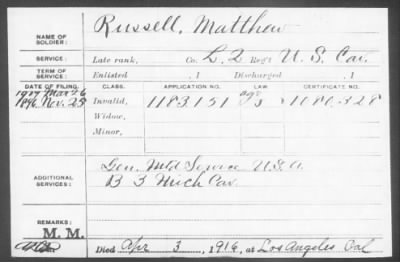 NAME OF SOLDIER: Russell, Matthew
SERVICE: Late rank, Co. L. 2 Reg't U. S. Cav.
TERM OF SERVICE: Enlisted , 1 Discharged , 1
DATE OF FILING. CLASS. APPLICATION NO. LAW CERTIFICATE NO.
1907 Mar 26
1896 Nov. 25 Invalid, 1183151 1080328
Widow,
Minor,
ADDITIONAL SERVICES: Gen. Mtd Service U.S.A.
B 3 Mich Cav.
REMARKS:
M. M.
Died Apr 3, 1916, at Los Angeles Cal